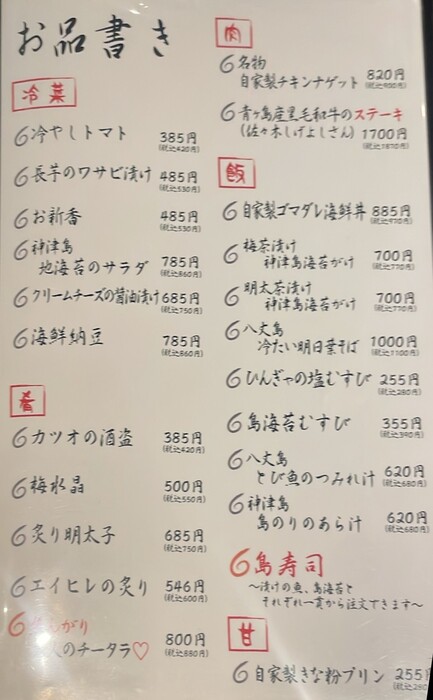 お品書き
冷菜
冷やしトマト 385円
(税込420円)
長芋のワサビ漬け 485円
(税込530円)
お新香 485円
(税込530円)
神津島
地海苔のサラダ 785円
(税込860円)
クリームチーズの醤油漬け 685円
(税込750円)
海鮮納豆 785円
(税込860円)
肴
カツオの酒盗 385円
(税込420円)
梅水晶 500円
(税込550円)
炙り明太子 685円
(税込750円)
エイヒレの炙り 546円
(税込600円)
がり
人のチータラ♡ 800円
(税込880円)
肉
名物
自家製チキンナゲット 820円
(税込900円)
青ヶ島産黒毛和牛のステーキ
(佐々木しげよしさん) 1700円
(税込1870円)
飯
自家製ゴマダレ海鮮丼 885円
(税込970円)
梅茶漬け
神津島海苔がけ 700円
(税込770円)
明太茶漬け
神津島海苔がけ 700円
(税込770円)
八丈島
冷たい明日葉そば 1000円
(税込1100円)
ひんぎゃの塩むすび 255円
(税込280円)
島海苔むすび 355円
(税込390円)
八丈島
とび魚のつみれ汁 620円
(税込680円)
神津島
島のりのあら汁 620円
(税込680円)
島寿司
〜漬けの魚、島海苔と
それぞれ一貫から注文できます〜
甘
自家製きな粉プリン 255
(税込280